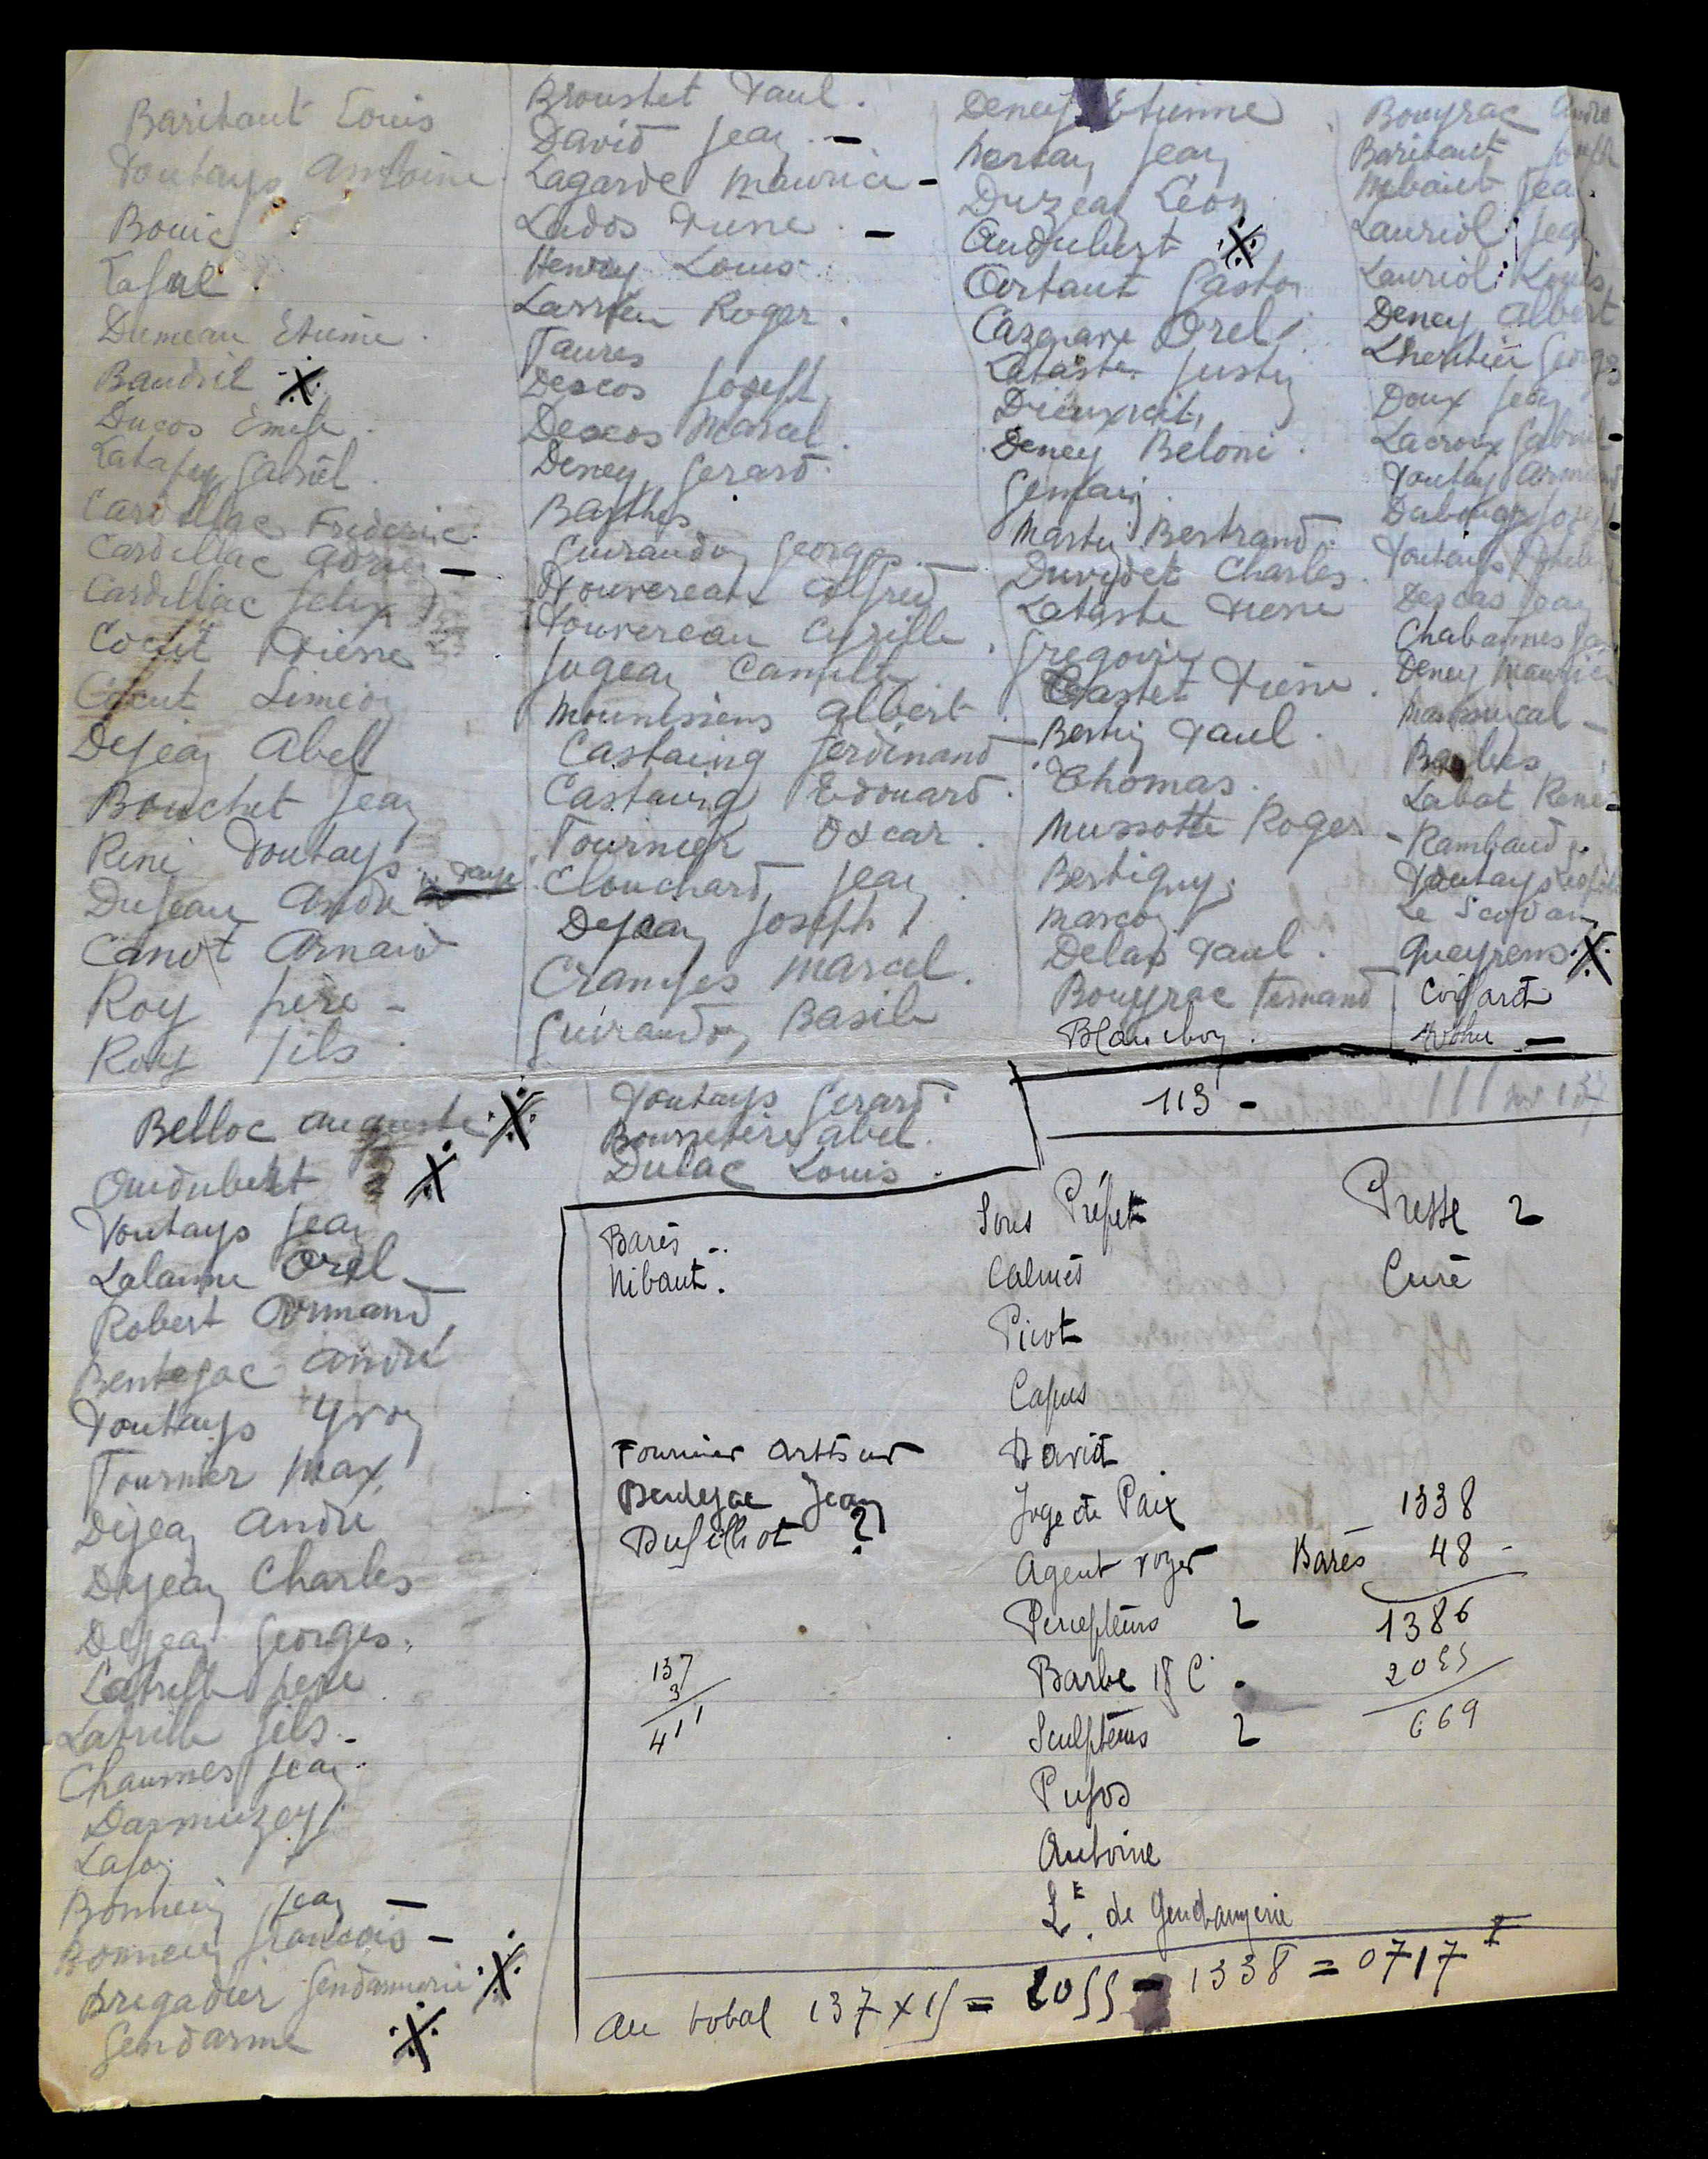 Baritaut Louis
Poutays Antoine
Bouic
Lafal
Dumeau Etienne
Baudril X
Ducos Emile
Latapy Gabriel
Cardillac Frederic
Cardillac Adrien -
Cardillac Felix
Cocut Pierre
Cocut Simeon
Dejean Abel
Bouchet Jean
René Poutays
Dujeau André
Canot Arnaud
Roy père -
Roy fils
Broustet Paul
David Jean -
Lagarde Maurice -
Lados Pierre -
Henry Louis
Larrieu Roger
Taures
Descos Joseph
Descos Marcel
Deney Gerard
Barthes
Guiraudon Georges
Pouvereau Alfred
Pouvereau Cyrille
Jugean Camille
Mounissens Albert
Castaing Ferdinand
Castaing Edouard
Tournier Oscar
Clouchard Jean
Dejean Joseph
Cranges Marcel
Guiraudon Basile
Deney Etienne
Jean
Duzean Léon
Audubert X
Artaut Gaston
Cazenave Orel
Lataste Justin
Dieuxveit
Deney Beloni
Germain
Martin Bertrand
Duvydet Charles
Lataste Pierre
Gregoire
Castet Pierre
Bertin Paul
Thomas
Mussotte Roger
Bertigny
Marcon
Delas Paul
Bouyrac Fernand
Blanchon
Bouyrac André
Baritaut Joseph
Jean
Lauriol Jean
Lauriol Louis
Deney Albert
Lheritier Georges
Doux Jean
Lacroix Gabriel -
Poutays Armand
Joseph
Poutays
Descas Jean
Chabannes
Deney Maurice
Barbes
Labat René -
Rambaud
Poutays
Queyrens X
Coifard
-
Belloc Auguste X
Audubert X
Poutays Jean
Lalanne Orel -
Robert Armand
Bentejac André
Poutays Yvon
Tournier Max
Dejean André
Dejean Charles
Dejean Georges
Latrille père
Latrille fils -
Chaumes Jean
Darmuzey
Lafon
Bonneau Jean -
Bonneau François -
Brigadier Gendarmerie X
Gendarme X
Poutays Gerard
Abel
Dulac Louis
113 -
111
Barés
Nibaut
Fournier Arthur
Bentejac Jean
Dufilhot ?
137
3
411
Sous Préfet
Calmés
Picot
Capus
David
Juge de Paix
Agent voyer
Percepteurs 2
Barbe
Sculpteurs 2
Pujos
Antoine
Lt. de Gendarmerie
Presse 2
Curé
1338
Barés 48 -
1386
2055
669
Au total 137 x 15 = 2055 - 1338 = 0717